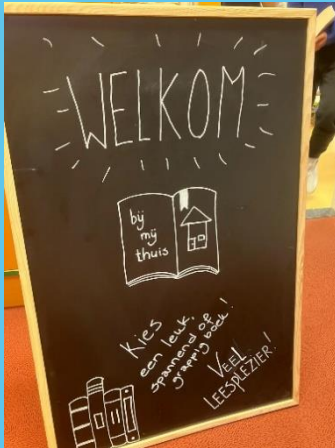 WELKOM
bij
mij
thuis
Kies
een leuk,
spannend of
grappig boek!
VEEL
LEESPLEZIER!